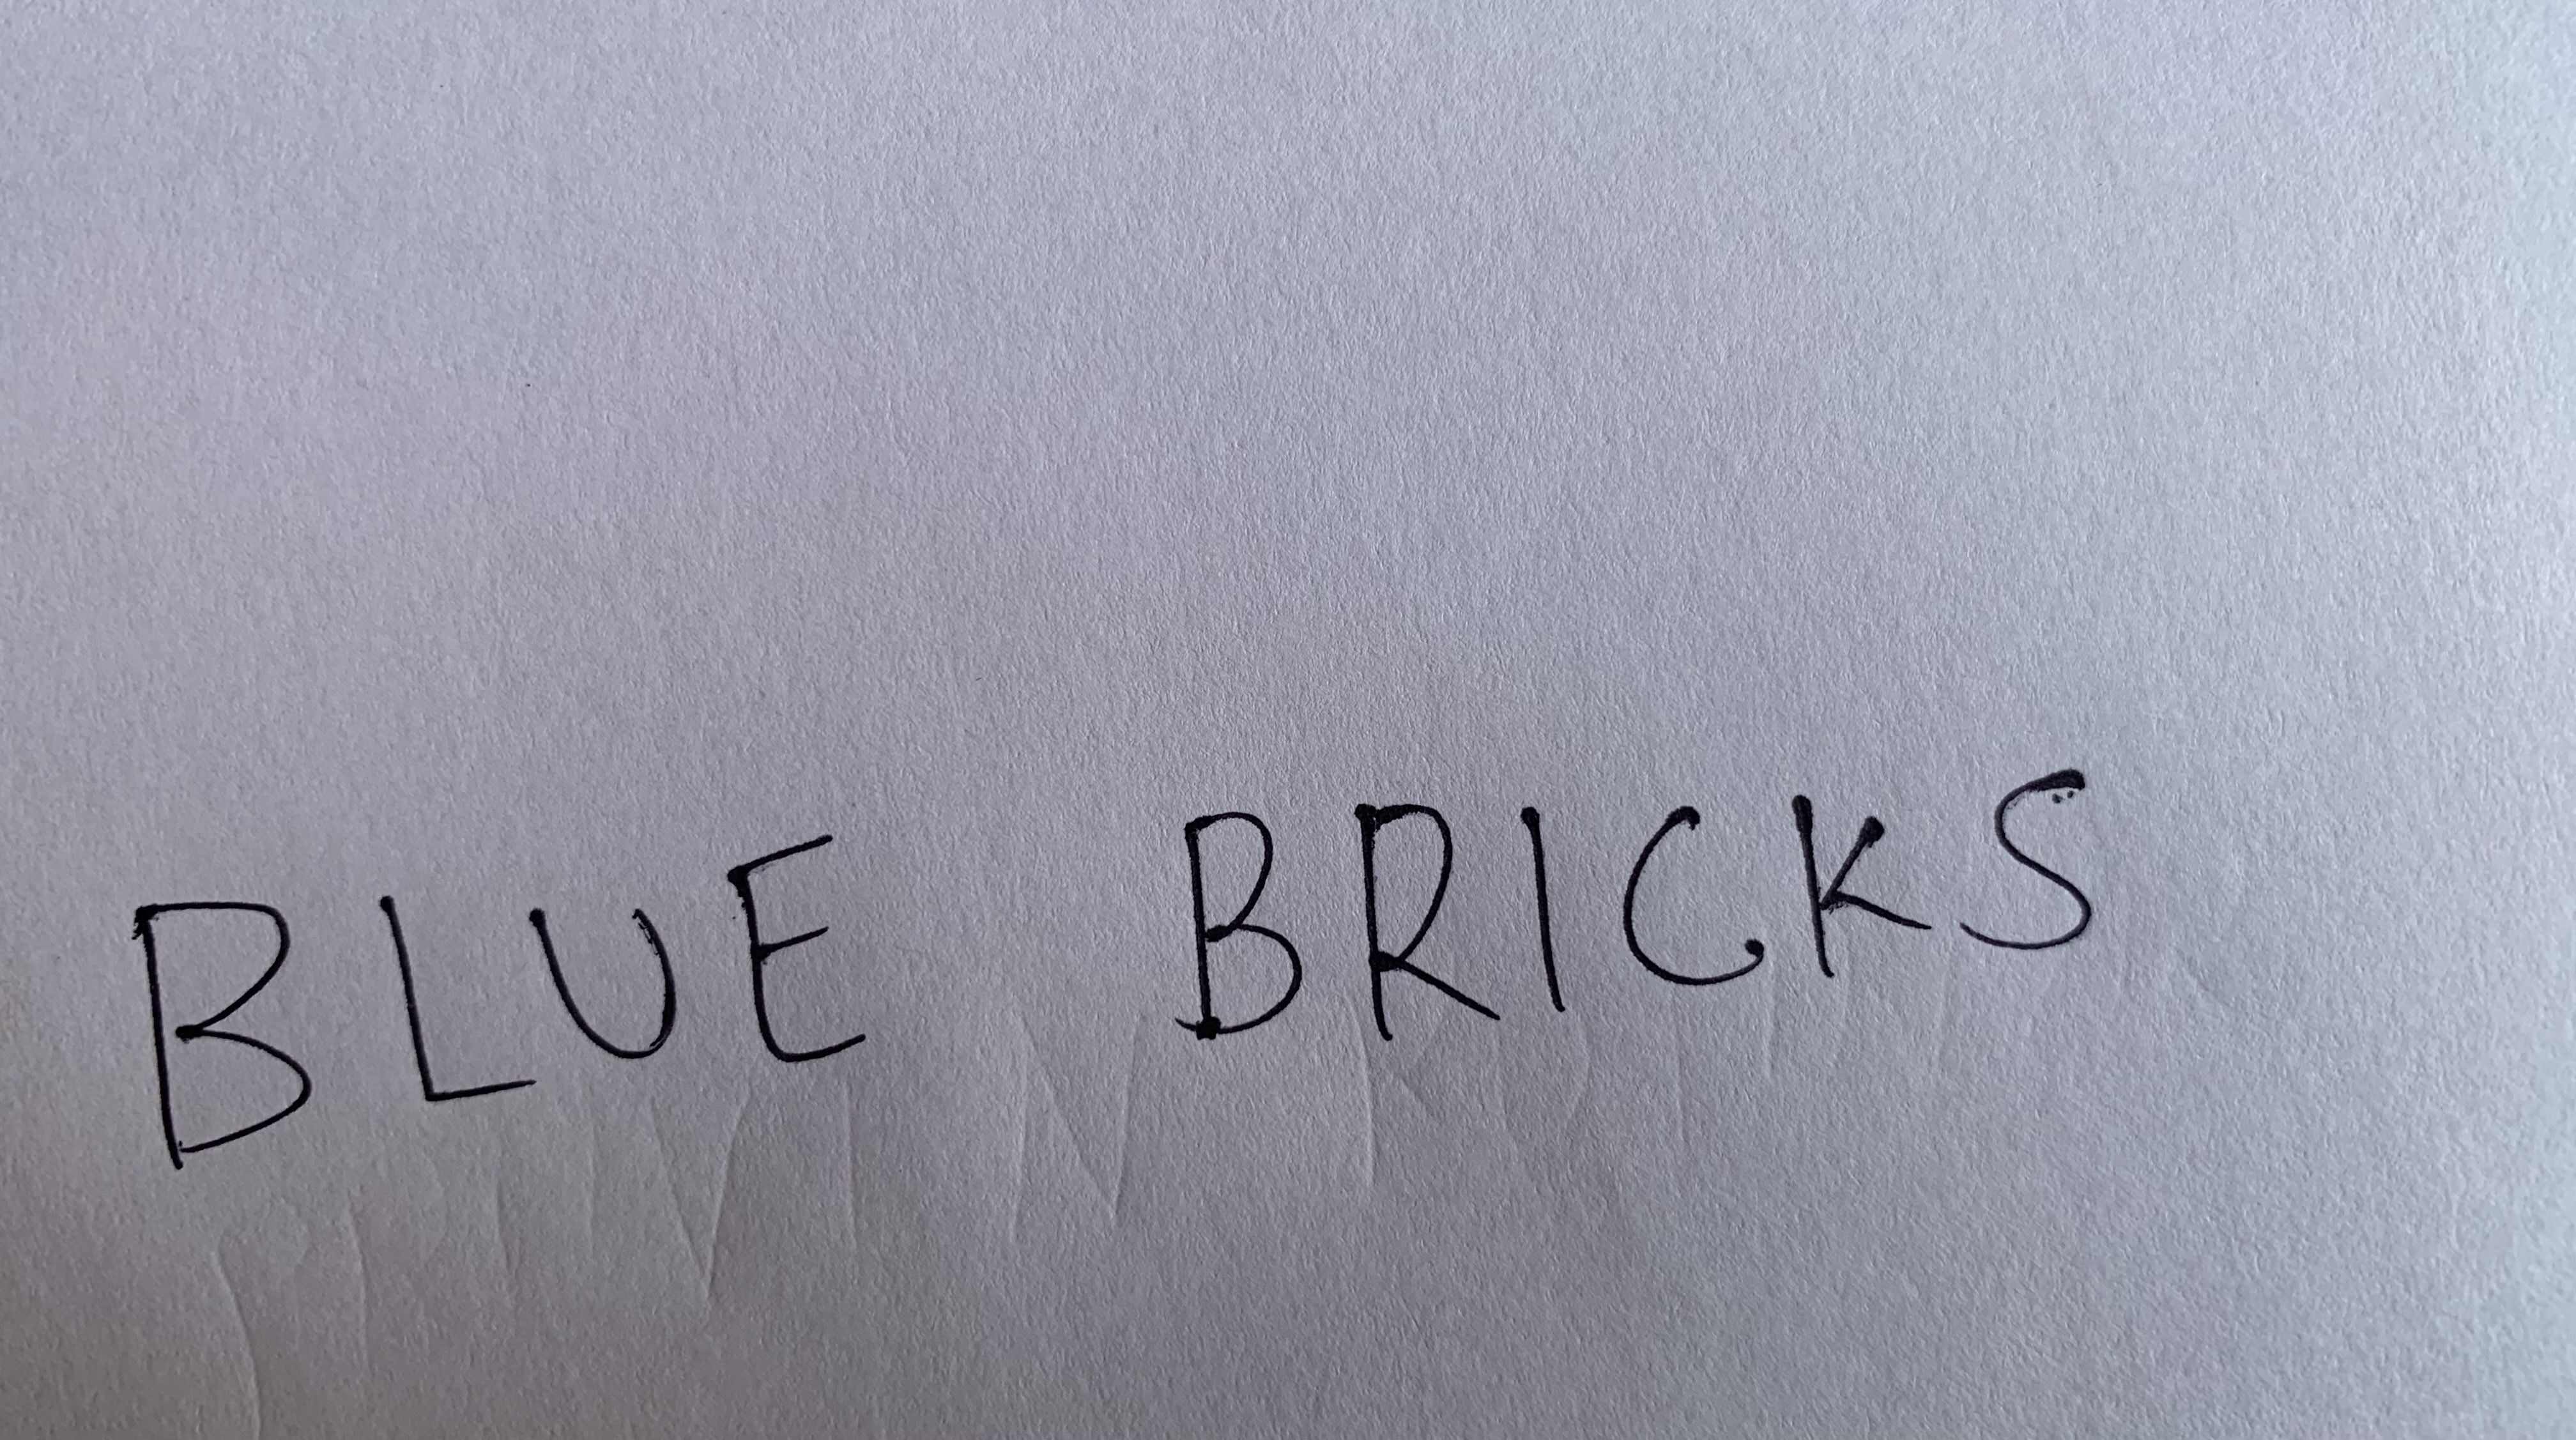 BLUE BRICKS